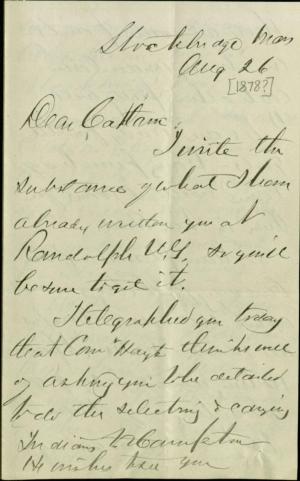 Stockbridge Mass
Aug 26
[1878?]
Dear Captain,
I write the
substance of what I have
already written you at
Randolph N.Y. so you'll
be sure to get it.
I telegraphed you today
that Comr Hayt thinks well
of asking you to be detailed
to do the selecting & carrying
Indians to Hampton
He wishes that you